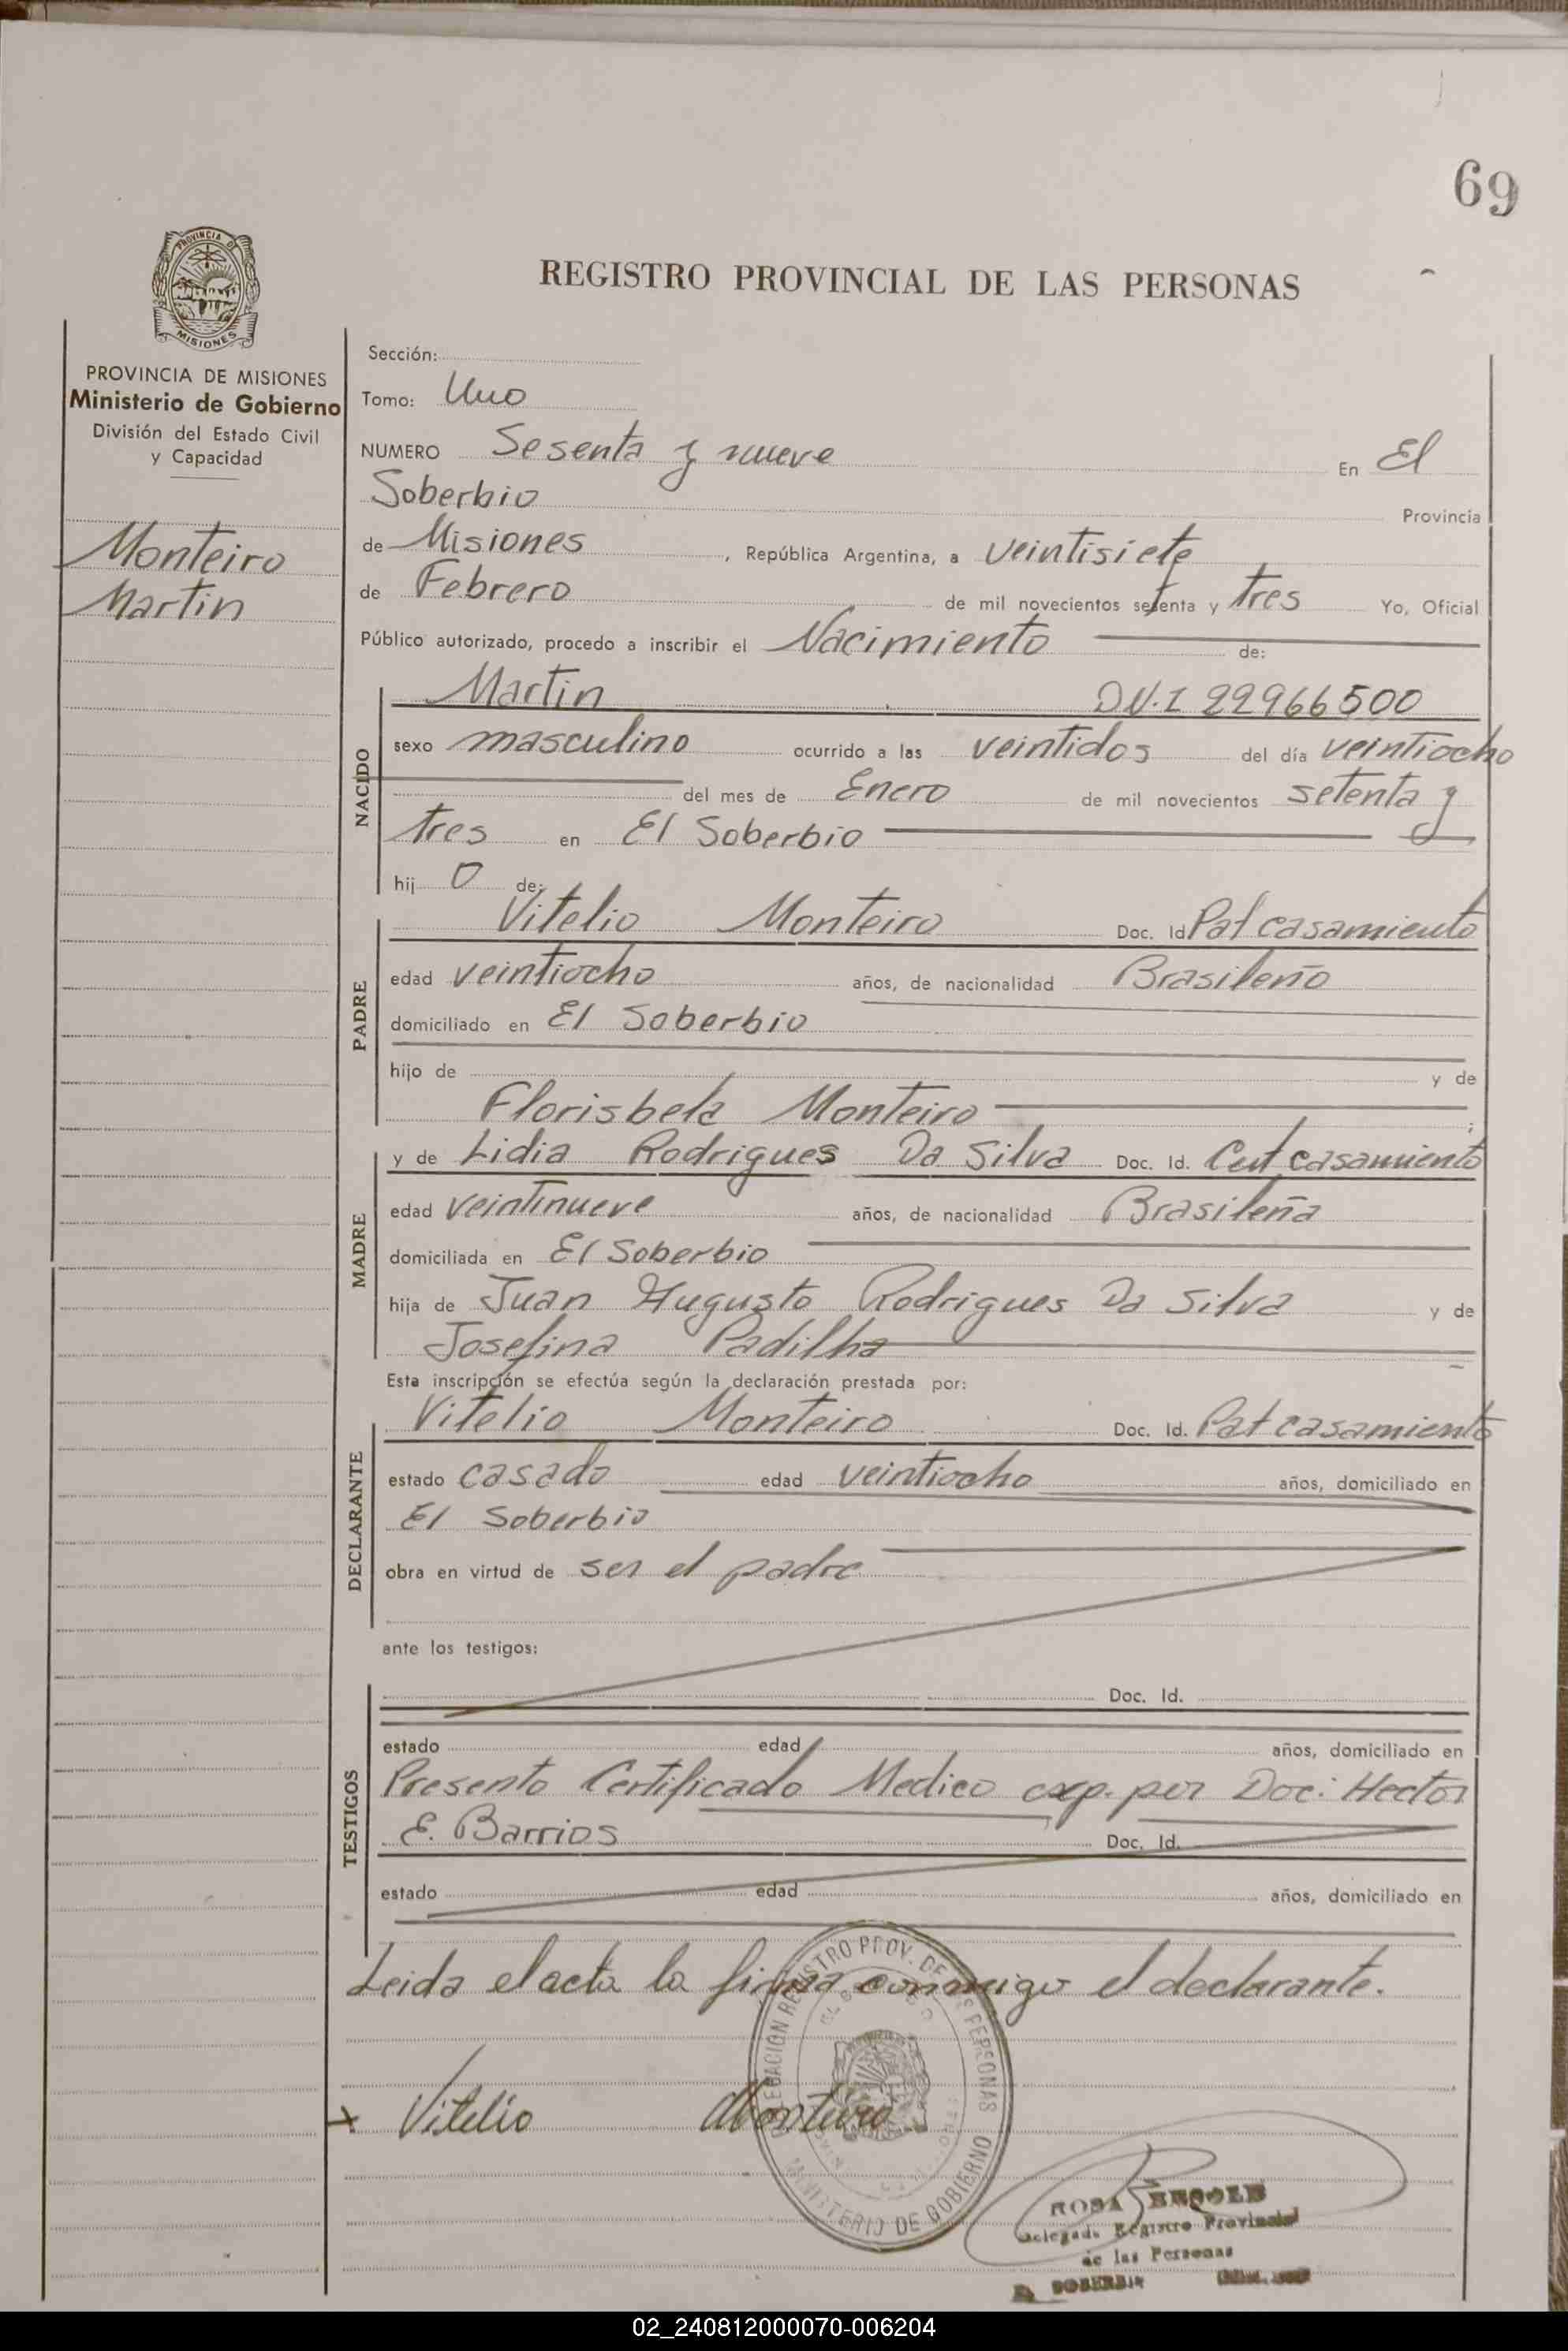 69
PROVINCIA DE
MISIONES
REGISTRO PROVINCIAL DE LAS PERSONAS
PROVINCIA DE MISIONES
Ministerio de Gobierno
División del Estado Civil
y Capacidad
Monteiro
Martin
Sección:
Tomo: Uno
NUMERO Sesenta y nueve En El
Soberbio Provincia
de Misiones, República Argentina, a veintisiete
de Febrero de mil novecientos setenta y tres Yo, Oficial
Público autorizado, procedo a inscribir el Nacimiento de:
NACIDO
Martin D.N.I 22966500
sexo masculino ocurrido a las veintidos del día veintiocho
del mes de Enero de mil novecientos setenta y
tres en El Soberbio
hij o de:
PADRE
Vitelio Monteiro Doc. Id Pat casamiento
edad veintiocho años, de nacionalidad Brasileño
domiciliado en El Soberbio
hijo de y de
Florisbela Monteiro ;
MADRE
y de Lidia Rodrigues Da Silva Doc. Id. Cert casamiento
edad veintinueve años, de nacionalidad Brasileña
domiciliada en El Soberbio
hija de Juan Augusto Rodrigues Da Silva y de
Josefina Padilha
Esta inscripción se efectúa según la declaración prestada por:
DECLARANTE
Vitelio Monteiro Doc. Id. Pat casamiento
estado casado edad veintiocho años, domiciliado en
El Soberbio
obra en virtud de ser el padre
ante los testigos:
TESTIGOS
Doc. Id.
estado edad años, domiciliado en
Presento Certificado Medico exp. por Doc: Hector
E. Barrios Doc. Id.
estado edad años, domiciliado en
Leida el acta la firma conmigo el declarante.
DELEGACION REGISTRO PROV. DE LAS PERSONAS
MINISTERIO DE GOBIERNO
x Vitelio Monteiro
ROSA
Delegada Registro Provincial
de las Personas
EL SOBERBIO
02_240812000070-006204